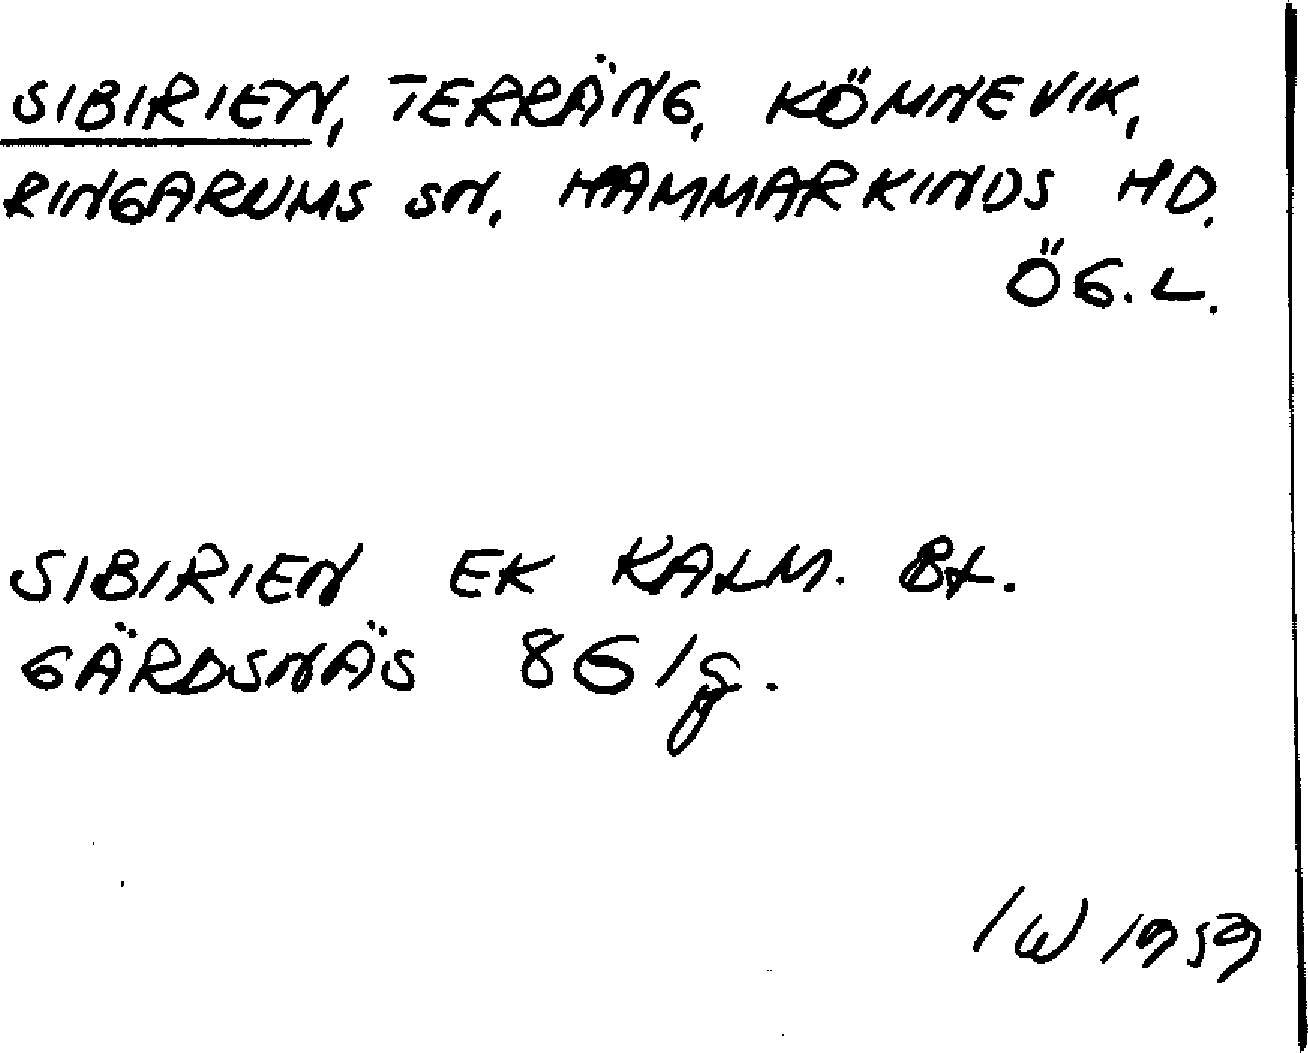 SIBIRIEN, TERRÄNG, KÖMNEVIK,
RINGARUMS SN, HAMMARKINDS HD.
ÖG. L.
SIBIRIEN EK KALM. BL.
GÄRDSNÄS 8G/g.
IW 1959